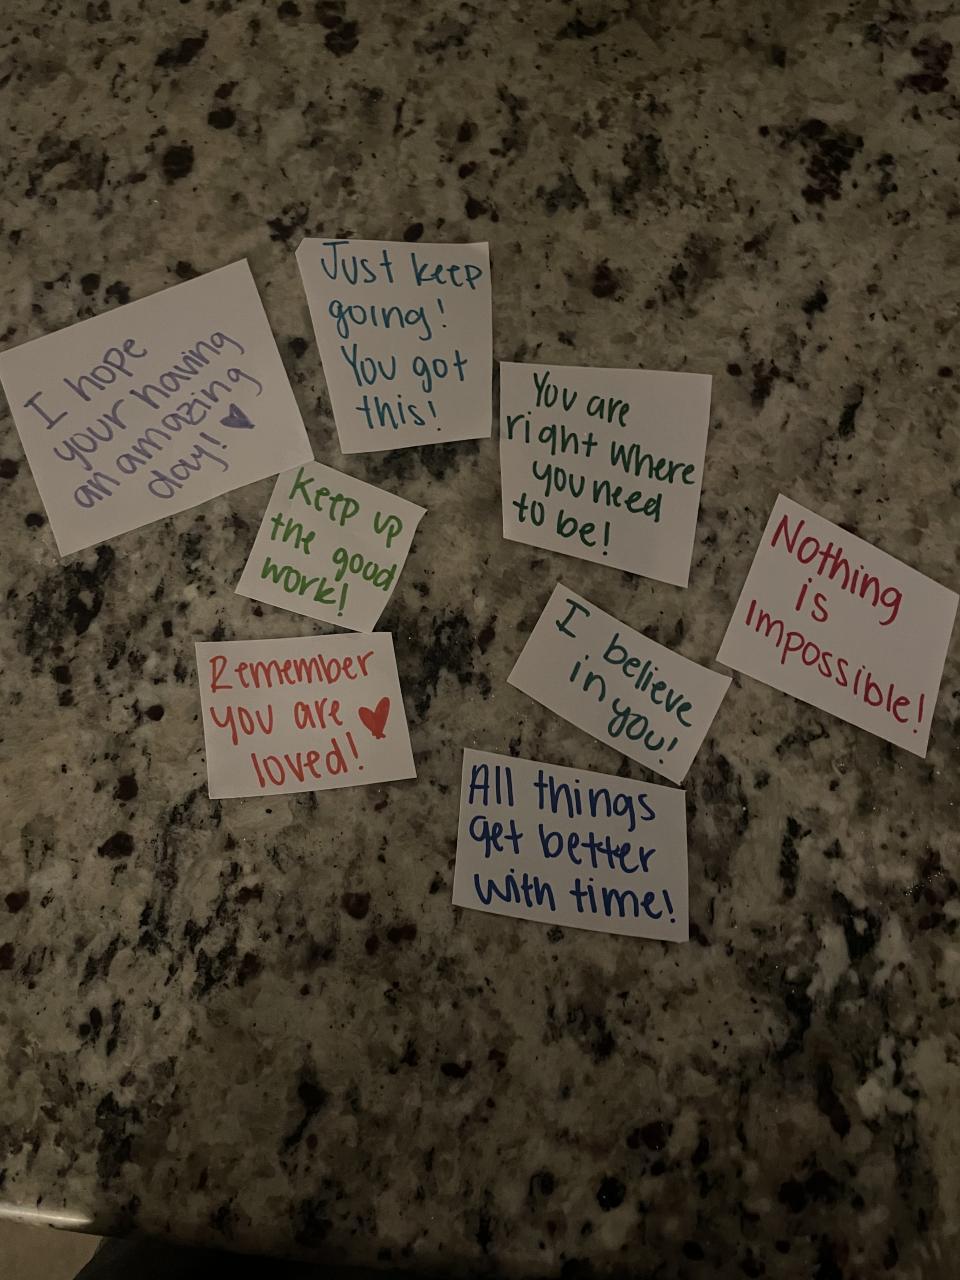 I hope
your having
an amazing
day!
Just keep
going!
You got
this!
You are
right where
you need
to be!
Keep up
the good
work!
Nothing
is
Impossible!
I believe
in you!
Remember
you are
loved!
All things
get better
with time!